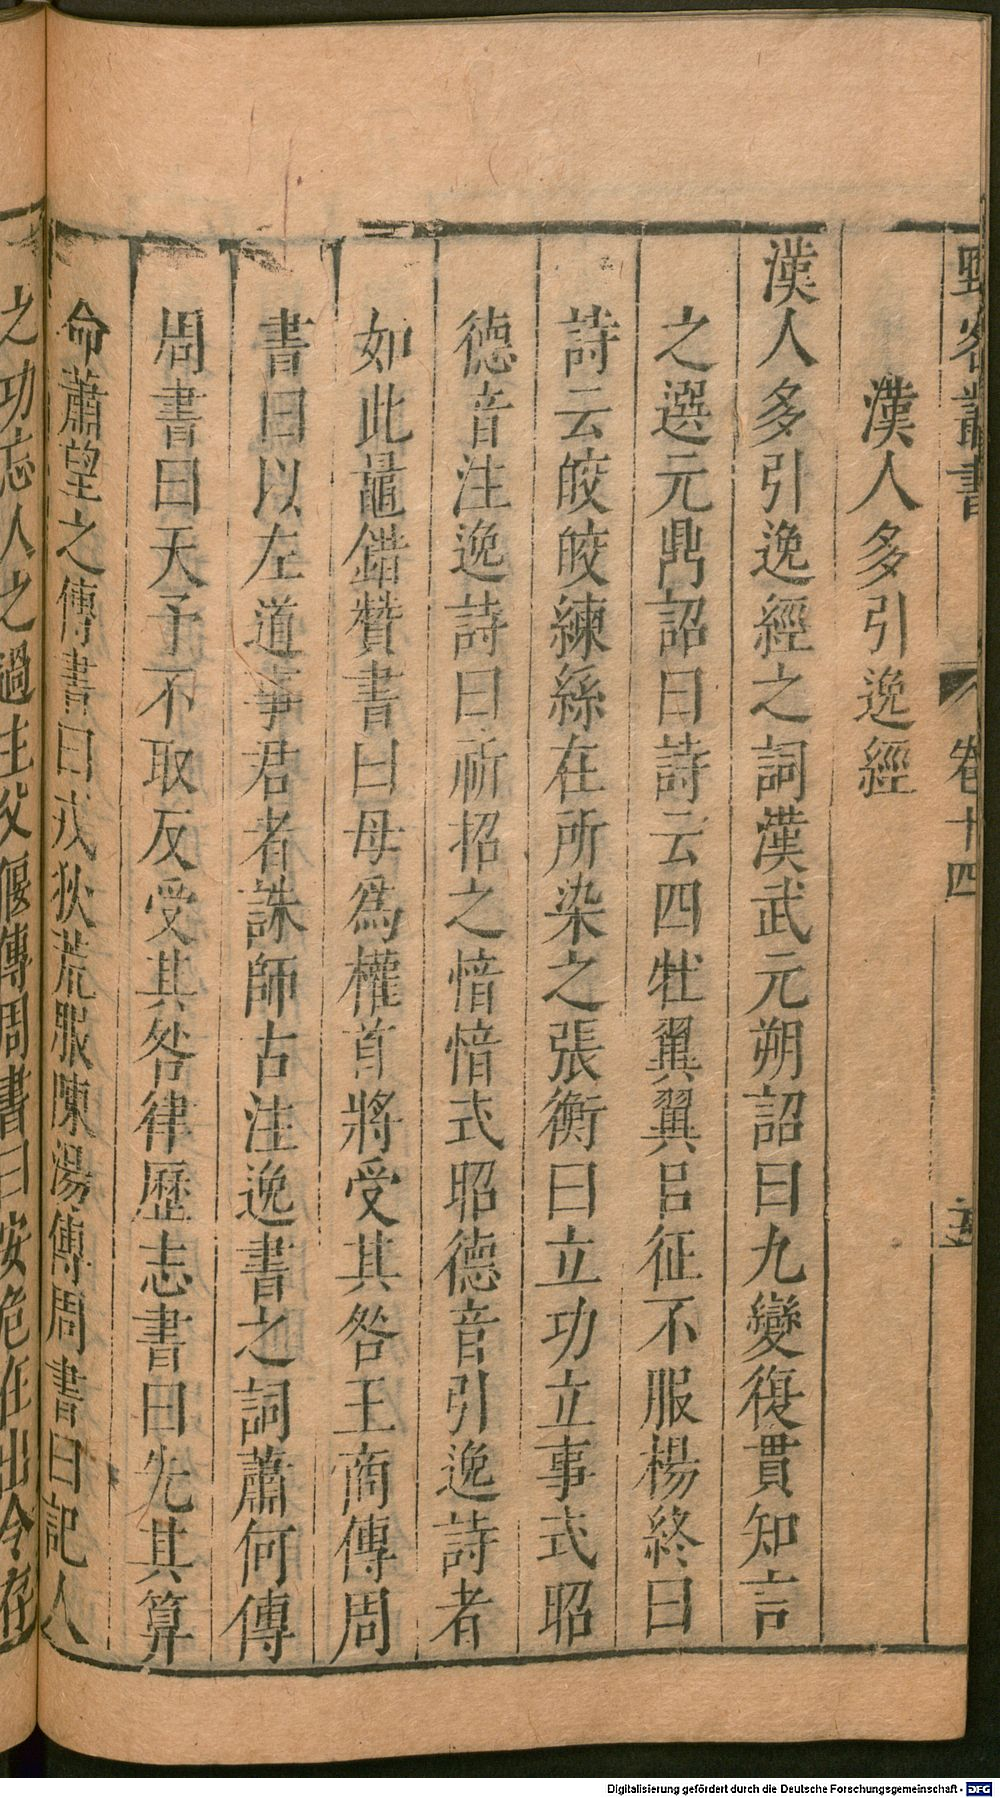 野客叢書 卷十四
漢人多引逸經
漢人多引逸經之詞漢武元朔詔曰九變復貫知言
之選元鼎詔曰詩云四牡翼翼呂征不服楊終曰
詩云皎皎練絲在所染之張衡曰立功立事式昭
德音注逸詩曰祈招之愔愔式昭德音引逸詩者
如此鼂錯贊書曰毋爲權首將受其咎王商傳周
書曰以左道事君者誅師古注逸書之詞蕭何傳
周書曰天予不取反受其咎律歷志書曰先其算
命蕭望之傳書曰戎狄荒服陳湯傳周書曰記人
之功忘人之過主父偃傳周書曰安危在出令存
Digitalisierung gefördert durch die Deutsche Forschungsgemeinschaft - DFG